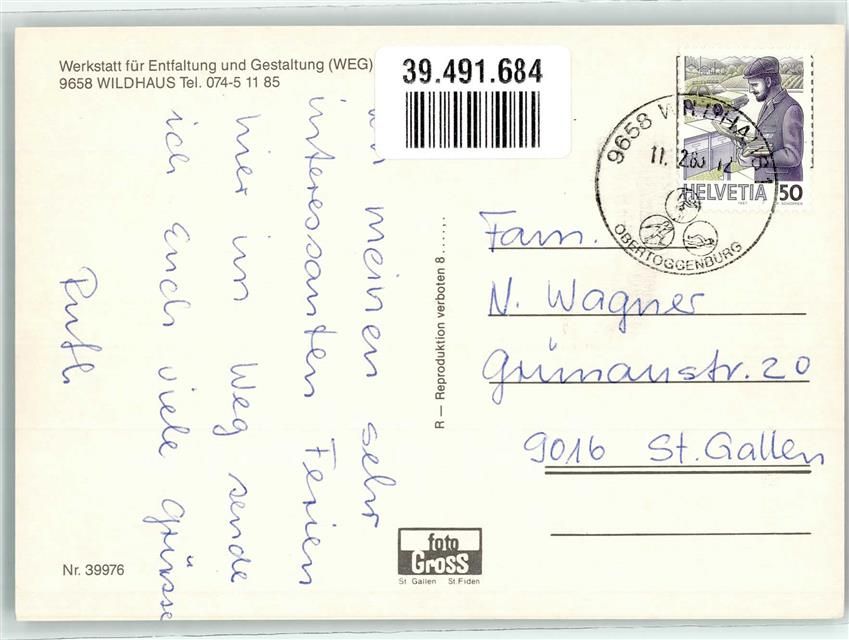 Werkstatt für Entfaltung und Gestaltung (WEG)
9658 WILDHAUS Tel. 074-5 11 85
39.491.684
9658 WILDHAUS 1
OBERTOGGENBURG
HELVETIA 50
meinen sehr
interessanten Ferien
hier im Weg sende
ich Euch viele Grüsse
Ruth
R — Reproduktion verboten 8......
Fam.
N. Wagner
Grünaustr. 20
9016 St. Gallen
Nr. 39976
foto
Gross
St Gallen St. Fiden